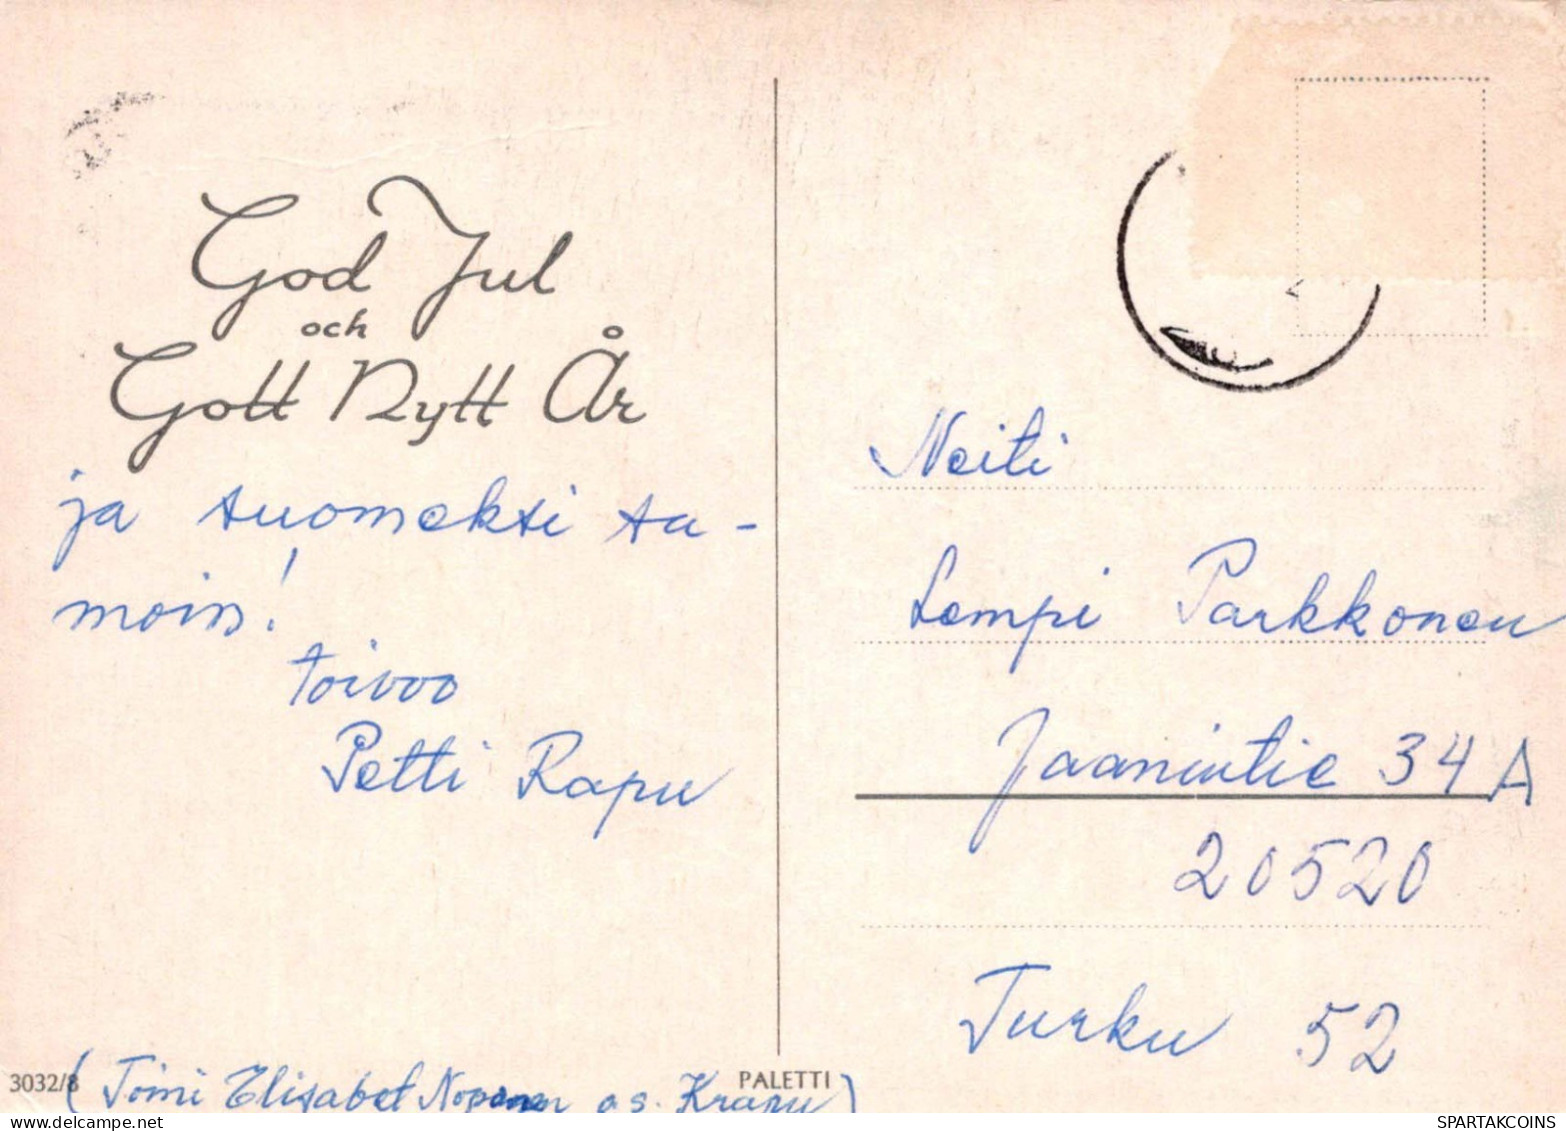 God Jul
och
Gott Nytt År
ja suomeksi sa-
moin!
toivoo
Petti Rapu
Neiti
Lempi Parkkonen
Jaanintie 34 A
20520
Turku 52
3032/8
PALETTI
(Toini Elisabet os. Krapu)
SPARTAKCOINS